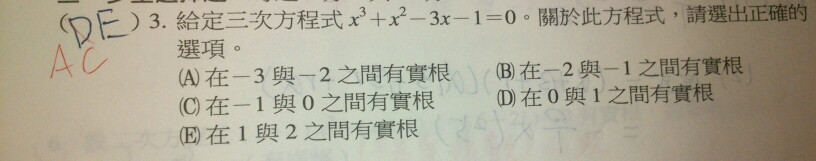 (DE) 3. 給定三次方程式 x³+x²−3x−1=0。關於此方程式,請選出正確的
AC 選項。
(A) 在−3與−2之間有實根 (B) 在−2與−1之間有實根
(C) 在−1與0之間有實根 (D) 在0與1之間有實根
(E) 在1與2之間有實根